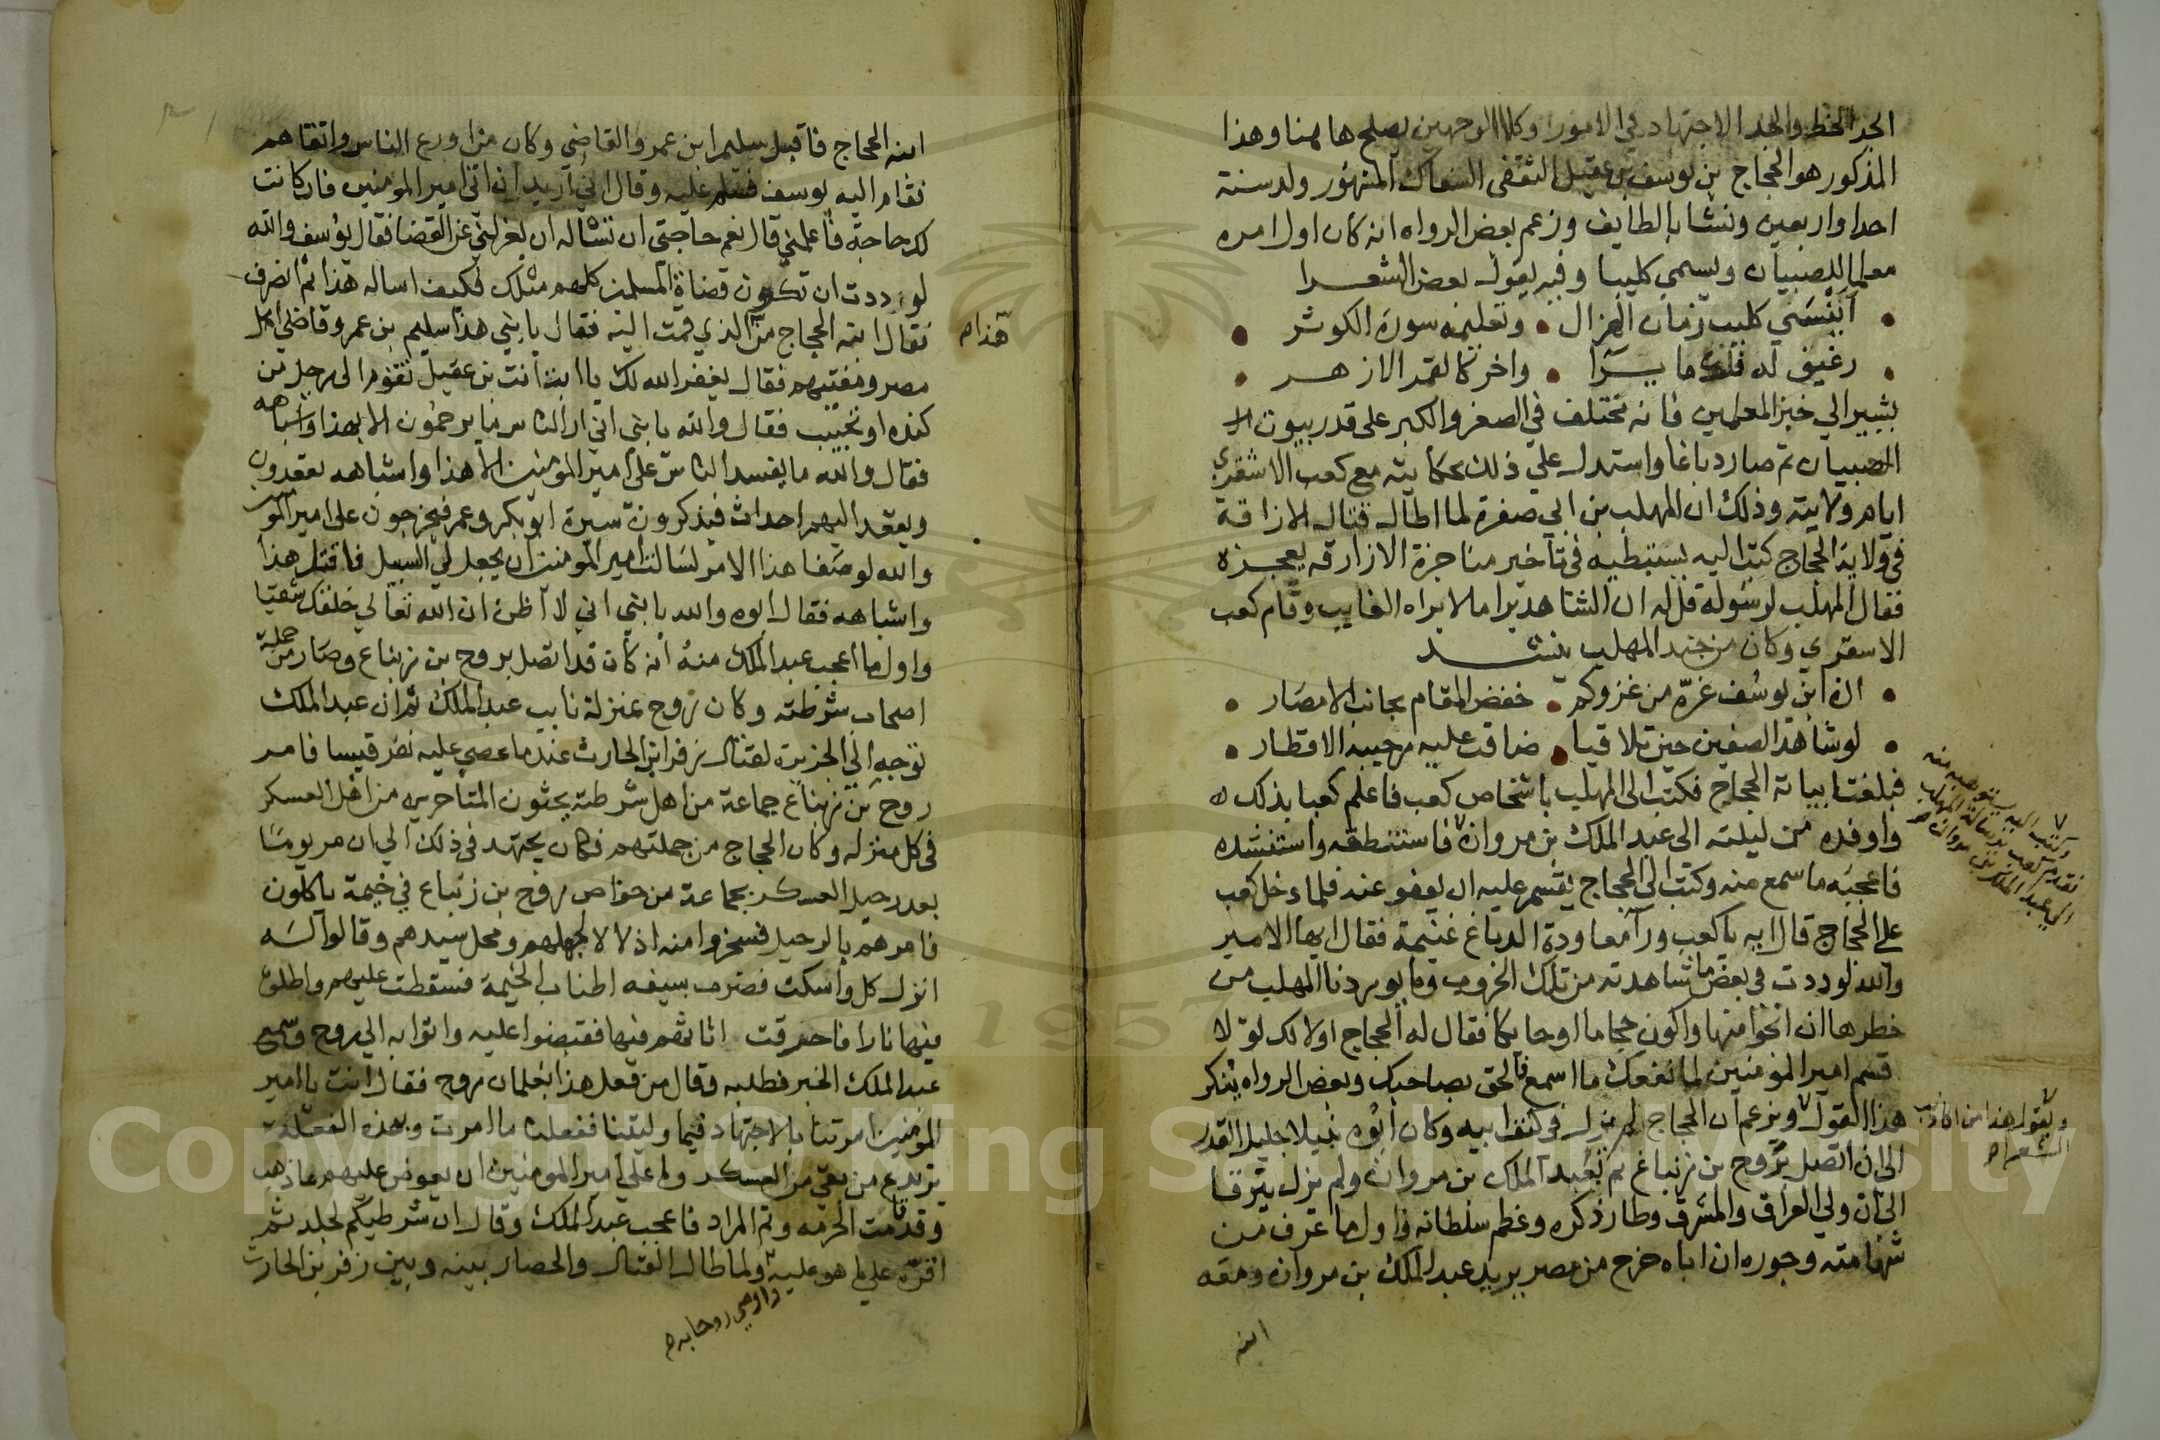 الجد الحظ والجد الاجتهاد في الامور وكلا الوجهين يصلح هاهنا وهذا
المذكور هو الحجاج بن يوسف بن عقيل الثقفى السفاك المشهور ولد سنة
احدا واربعين ونشا بالطايف وزعم بعض الرواه انه كان اول امره
معلما للصبيان ويسمى كليبا وفيه يقول بعض الشعرا
اينسى كليب زمان الهزال • وتعليمه سورة الكوثر
رغيف له فلكه ما يرا • واخر كالقمر الازهر
يشير الي خبز المعلمين فانه تختلف في الصغر والكبر على قدر بيوت الا
الصبيان ثم صار دباغا واستدل علي ذلك بحكايته مع كعب الاشقري
ايام ولايته وذلك ان المهلب بن ابي صفرة لما اطال قتال الازاقة
في ولاية الحجاج كتب اليه يستبطيه في تاخير مناجزة الازارقه يعجزه
فقال المهلب لرسوله قل له ان الشاهد يرا ما لا يراه الغايب وقام كعب
الاسقري وكان من جند المهلب ينشد
ان ابن يوسف غره من غزوكم • خفض المقام بجانب الامصار
لو شاهد الصفين حين تلاقيا • ضاقت عليه رحيبة الاقطار
فبلغت ابياته الحجاج فكتب الى المهلب باشخاص كعب فاعلم كعبا بذلك
واوفده من ليلته الى عبد الملك بن مروان فاستنطقه واستنشده
فاعجبه ما سمع منه وكتب الى الحجاج يقسم عليه ان يعفو عنه فلما دخل كعب
علي الحجاج قال ايه يا كعب ورا معاودة الدباغ غنيمة فقال ايها الامير
والله لوددت في بعض ما شاهدته من تلك الحروب وما يوردنا المهلب من
خطرها ان انجوا منها واكون حجاما او حايكا فقال له الحجاج اولا لك لولا
قسم امير المومنين لما نفعك ما اسمع فالحق بصاحبك وبعض الرواه ينكر
هذا القول ويزعم ان الحجاج لم يزل في كنف ابيه وكان ابوه نبيلا جليل القدر
الى ان اتصل بروح بن زنباغ ثم بعبد الملك بن مروان ولم يزل يترقا
الى ان ولي العراق والمشرق وطار ذكره وعظم سلطانه واول ما عرف من
شهامته وجوره ان اباه خرج من مصر يريد عبد الملك بن مروان ومعه
ابنه
وكتب اليه
عبد الملك بن مروان
ويقول هذا من اكاذيب
الشعراء
ابنه الحجاج فاقبل سليم ابن عمرو القاضي وكان من اورع الناس واتقاهم
فقام اليه يوسف فسلم عليه وقال اني اريد ان اتي امير المومنين فان كانت
لك حاجة فاعلمني قال نعم حاجتي ان تساله ان يعزلني عن القضا فقال يوسف والله
لوددت ان تكون قضاة المسلمين كلهم مثلك فكيف اساله هذا ثم انصرف
فقال ابنه الحجاج من الذي قمت اليه فقال يا بني هذا سليم بن عمرو قاضي اهل
هذا
مصر ومفتيهم فقال يغفر الله لك يا ابت انت بن عقيل تقوم الى رجل من
كنده او تجيب فقال والله يا بني اني ارا الناس ما يرحمون الا بهذا واشباهه
فقال والله ما يفسد الناس على امير المومنين الا هذا واشباهه يقعدون
ويقعد اليهم احداث فيذكرون سيرة ابو بكر وعمر فيخرجون على امير المومنين
والله لو صفا هذا الامر لسالت امير المومنين ان يجعل لي السبيل فاقتل هذا
واشباهه فقال ابوه والله يا بني اني لا اظن ان الله تعالي خلقك شقيا
واول ما اعجب عبد الملك منه انه كان قد اتصل بروح بن زنباع وصار من جملة
اصحاب شرطته وكان روح بمنزلة نايب عبد الملك ثم ان عبد الملك
توجه الي الجزيرة لقتال زفر ابن الحارث عند ما عصي عليه بقرقيسا فامر
روح بن زنباع جماعة من اهل شرطته يحثون المتاخرين من اهل العسكر
في كل منزله وكان الحجاج من جملتهم فكان يجتهد في ذلك الى ان مر يوما
بعد رحيل العسكر بجماعة من خواص روح بن زنباع في خيمة ياكلون
فامرهم بالرحيل فسخروا منه اذلالا لجهلهم ومحل سيدهم وقالوا له
انزل كل واسكت فضرب بسيفه اطناب الخيمة فسقطت عليهم واطلق
فيها نارا فاحترقت اثاثهم فيها فقبضوا عليه واتوا به الي روح وسمع
عبد الملك الخبر فطلبه وقال من فعل هذا بغلمان روح فقال انت يا امير
المومنين امرتنا بالاجتهاد فيما وليتنا ففعلنا ما امرت وبهذه الفعلة
يرتدع من بقي من العسكر وما علي امير المومنين ان يعوض عليهم ما ذهب
وقد قامت الحرمه وتم المراد فاعجب عبد الملك وقال ان شرطيكم لجلد ثم
اقره علي ما هو عليه ولما طال القتال والحصار بينه وبين زفر بن الحارث